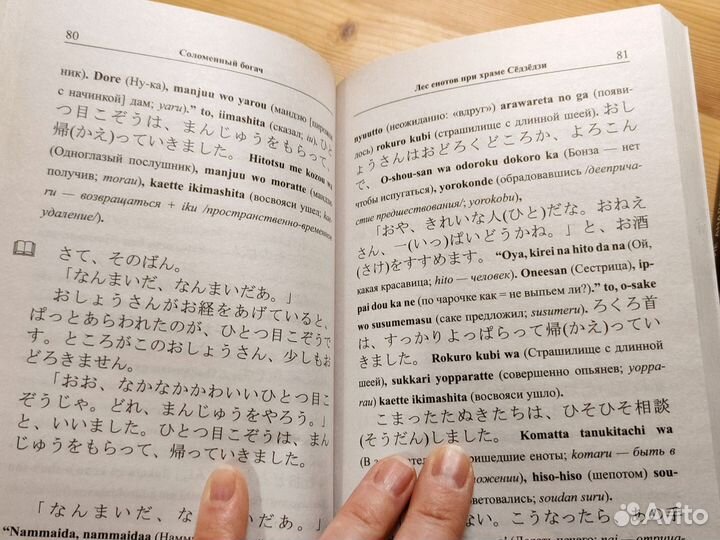 80
Соломенный богач
ник). Dore (Ну-ка), manjuu wo yarou (мандзю [пирожок
с начинкой] дам; yaru).” to, iimashita (сказал; iu). ひと
つ目こぞうは、まんじゅうをもらって、
帰(かえ)っていきました。 Hitotsu me kozou wa
(Одноглазый послушник), manjuu wo moratte (мандзю
получив; morau), kaette ikimashita (восвояси ушел; kae-
ru — возвращаться + iku /пространственно-временное
удаление/).
さて、そのばん。
「なんまいだ、なんまいだあ。」
おしょうさんがお経をあげていると、
ぱっとあらわれたのが、ひとつ目こぞうで
す。ところがこのおしょうさん、少しもお
どろきません。
「おお、なかなかかわいいひとつ目こ
ぞうじゃ。どれ、まんじゅうをやろう。」
と、いいました。ひとつ目こぞうは、まん
じゅうをもらって、帰っていきました。
「なんまいだ、なんまいだあ。」
“Nammaida, nammaidaa (Намм
Лес енотов при храме Сёдзёдзи
81
nyuutto (неожиданно: «вдруг») arawareta no ga (появи-
лось) rokuro kubi (страшилище с длинной шеей). おし
ょうさんはおどろくどころか、よろこん
で、 O-shou-san wa odoroku dokoro ka (Бонза — нет
чтобы испугаться), yorokonde (обрадовавшись /дееприча-
стие предшествования/; yorokobu),
「おや、きれいな人(ひと)だな。おねえ
さん、一(いっ)ぱいどうかね。」と、お酒
(さけ)をすすめます。 “Oya, kirei na hito da na (Ой,
какая красавица; hito — человек). Oneesan (Сестрица), ip-
pai dou ka ne (по чарочке как = не выпьем ли?).” to, o-sake
wo susumemasu (саке предложил; susumeru). ろくろ首
は、すっかりよっぱらって帰(かえ)ってい
きました。 Rokuro kubi wa (Страшилище с длинной
шеей), sukkari yopparatte (совершенно опьянев; yoppa-
rau) kaette ikimashita (восвояси ушло).
こまったたぬきたちは、ひそひそ相談
(そうだん)しました。 Komatta tanukitachi wa
(В пришедшие еноты; komaru — быть в
ложении), hiso-hiso (шепотом) sou-
оветовались; soudan suru).
ない。こうなったら、あの手
Avito